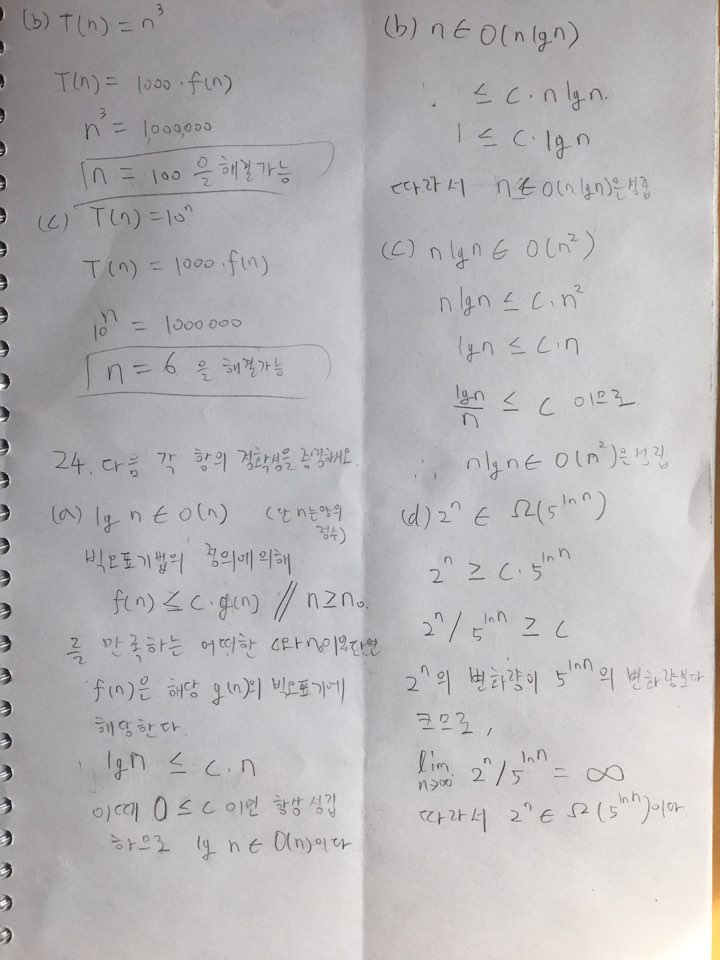 (b) T(n) = n³
T(n) = 1000·f(n)
n³ = 1,000,000
n = 100 을 해결가능
(c) T(n) = 10ⁿ
T(n) = 1000·f(n)
10ⁿ = 1000000
n = 6 을 해결가능
24. 다음 각 항의 정확성을 증명하세요.
(a) lg n ∈ O(n) (단 n는 양의 정수)
빅오표기법의 정의에 의해
f(n) ≤ c·g(n) // n ≥ n₀
를 만족하는 어떠한 c와 n₀이 있다면
f(n)은 해당 g(n)의 빅오표기에
해당한다.
lg n ≤ c·n
이때 0 ≤ c 이면 항상 성립
하므로 lg n ∈ O(n)이다
(b) n ∈ O(n lg n)
≤ c·n lg n.
1 ≤ c·lg n
따라서 n ∈ O(n lg n)은 성립
(c) n lg n ∈ O(n²)
n lg n ≤ c·n²
lg n ≤ c·n
lg n / n ≤ c 이므로
∴ n lg n ∈ O(n²)은 성립
(d) 2ⁿ ∈ Ω(5^ln n)
2ⁿ ≥ c·5^ln n
2ⁿ / 5^ln n ≥ c
2ⁿ의 변화량이 5^ln n의 변화량보다
크므로,
lim n→∞ 2ⁿ / 5^ln n = ∞
따라서 2ⁿ ∈ Ω(5^ln n)이다